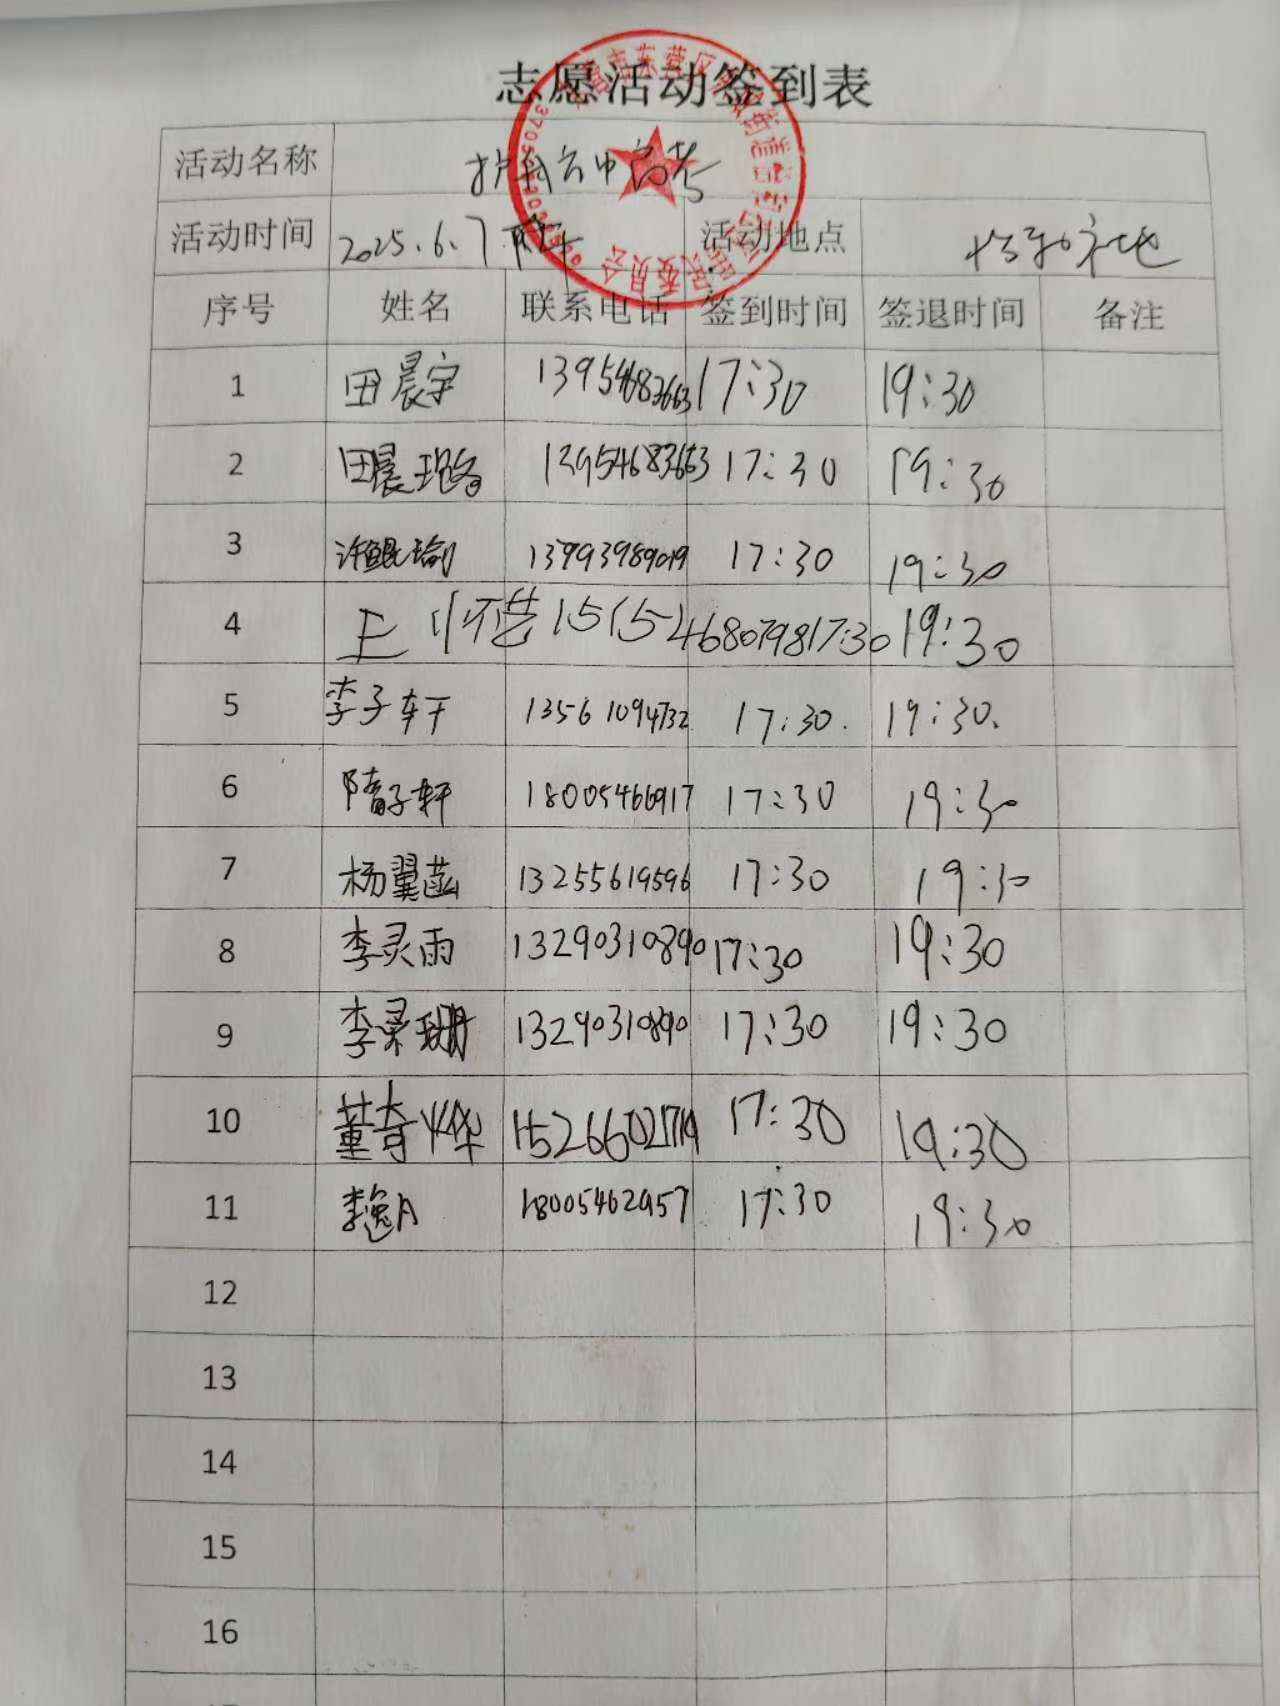 志愿活动签到表
活动名称 中高考
活动时间 2025.6.7 活动地点
序号 姓名 联系电话 签到时间 签退时间 备注
1 田晨宇 13954683663 17:30 19:30
2 田晨璐 13954683663 17:30 19:30
3 许鲲瑜 13793989019 17:30 19:30
4 15154680798 17:30 19:30
5 李子轩 13561094732 17:30. 19:30.
6 隋子轩 18005466917 17:30 19:30
7 杨翼菡 13255619596 17:30 19:30
8 李灵雨 13290310890 17:30 19:30
9 李 珊 13290310890 17:30 19:30
10 董奇烨 15266021719 17:30 19:30
11 李逸 18005462957 17:30 19:30
12
13
14
15
16